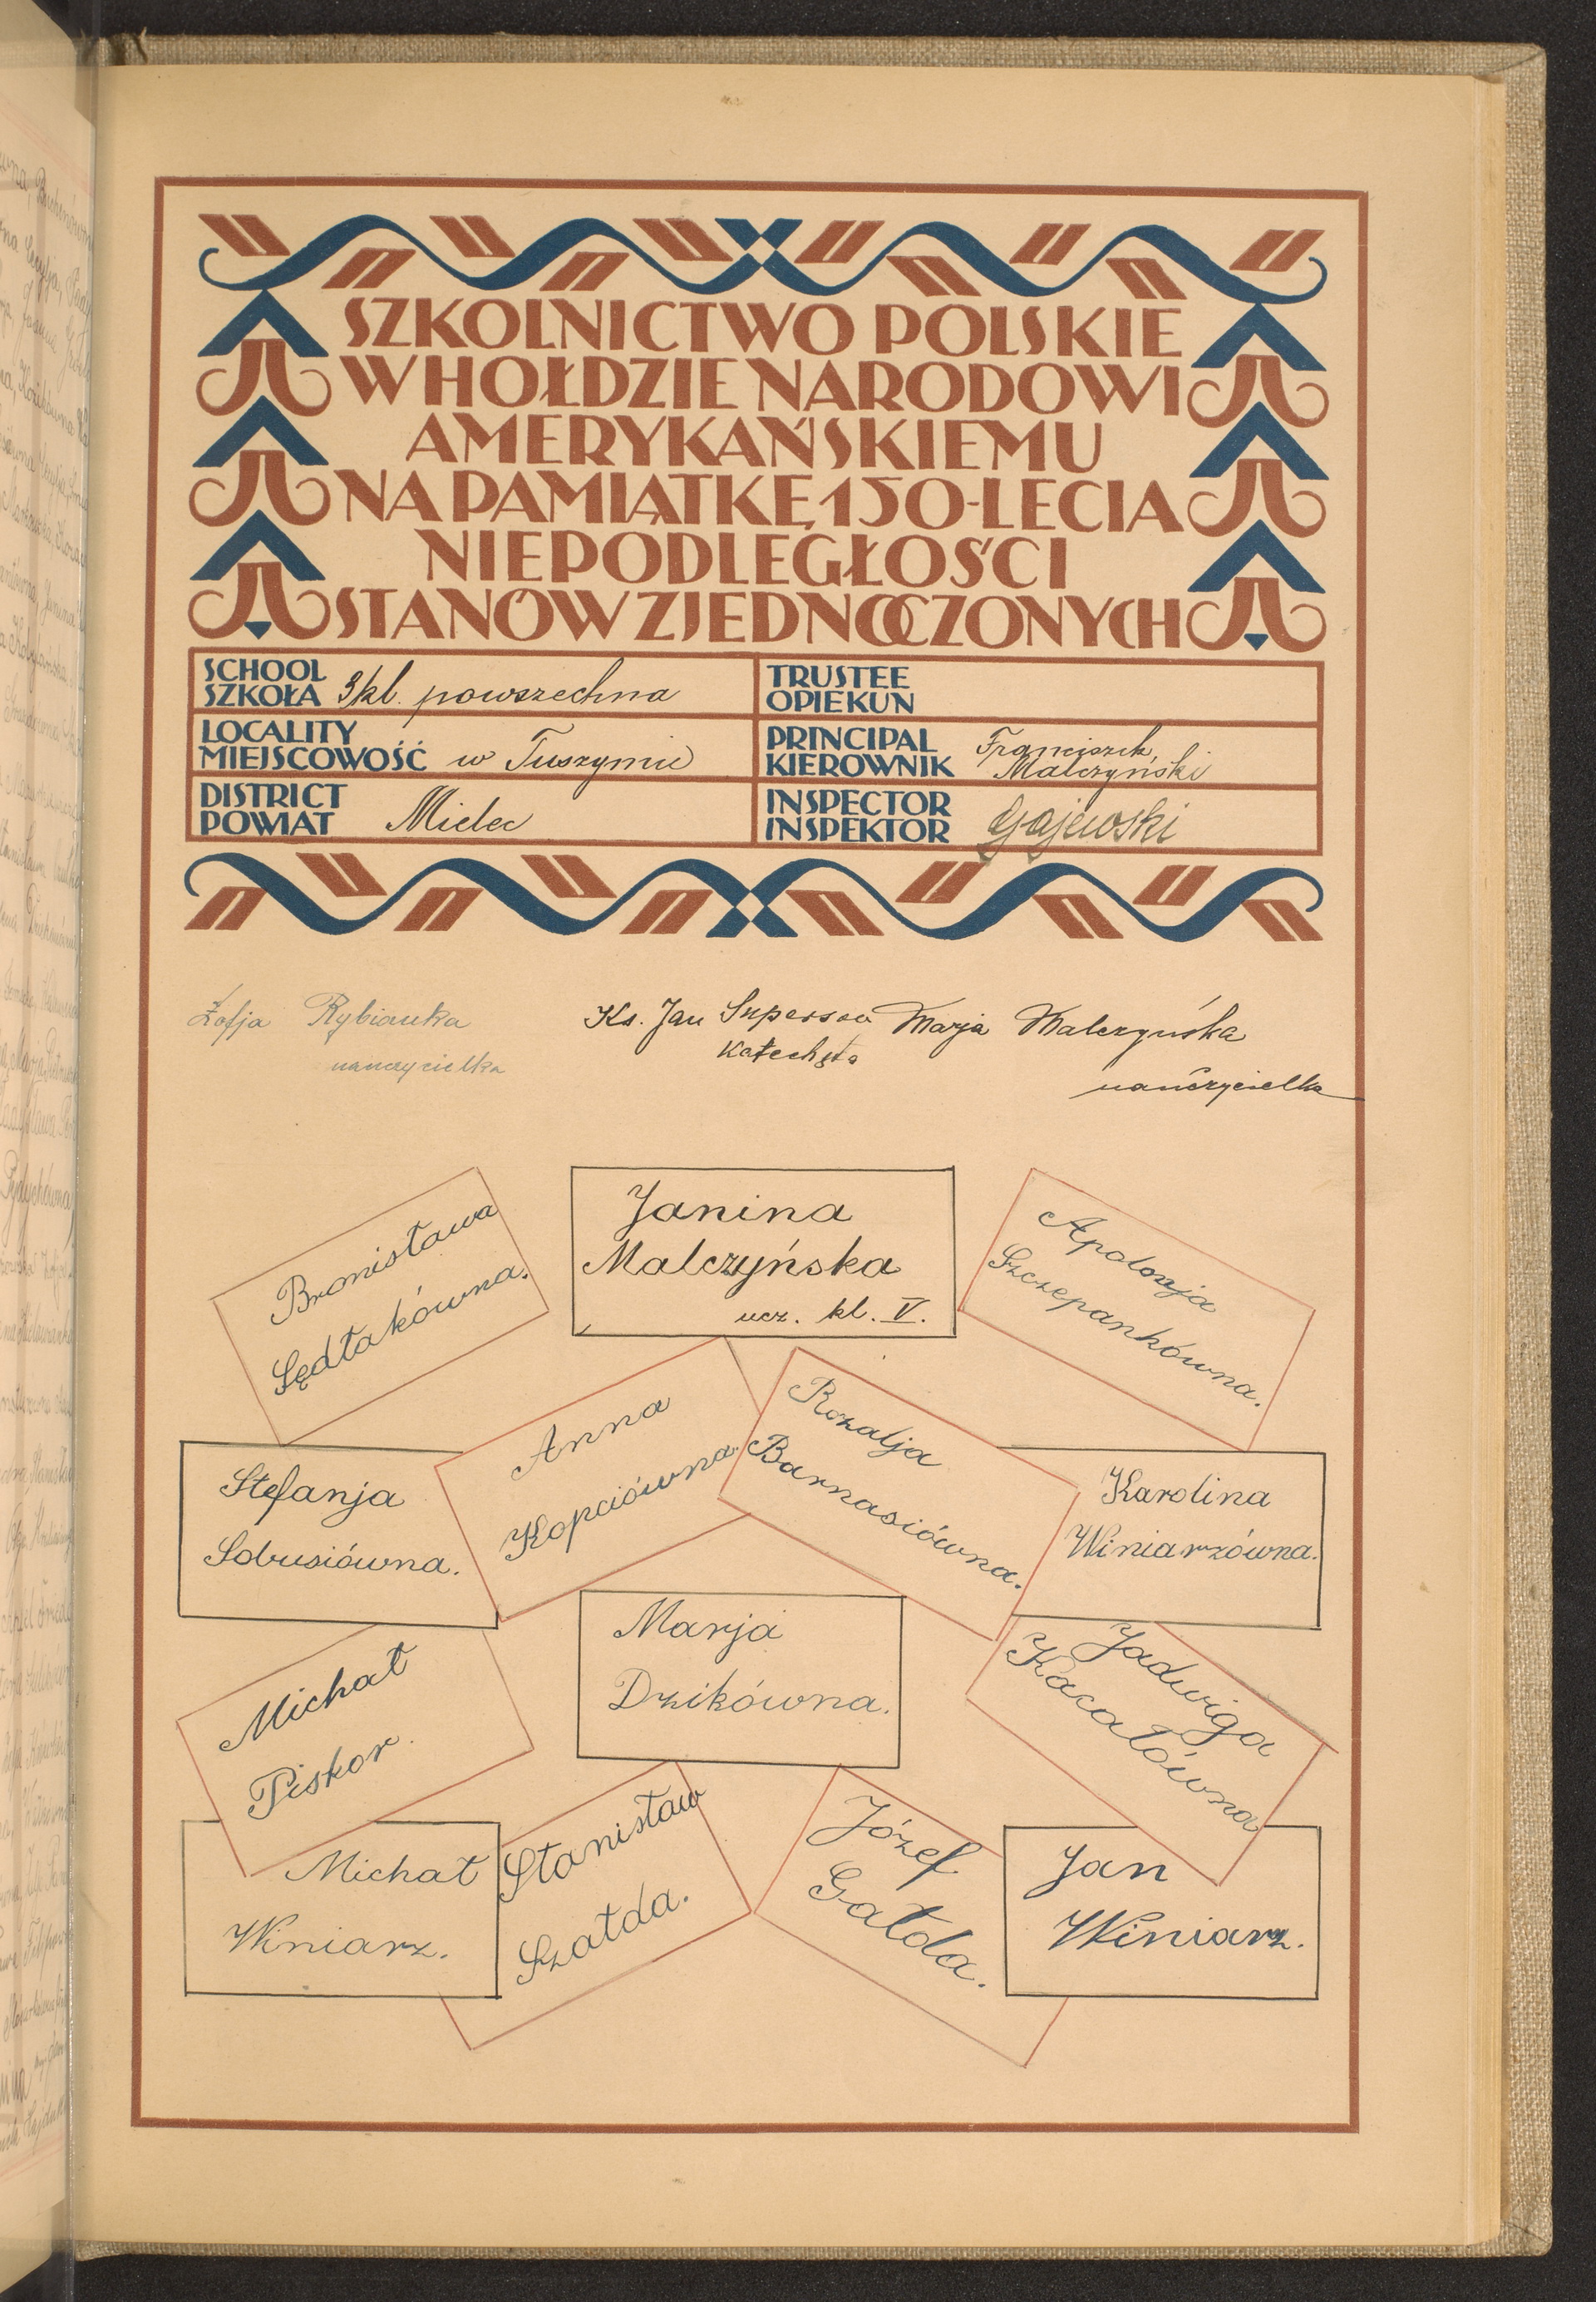 SZKOLNICTWO POLSKIE
W HOŁDZIE NARODOWI
AMERYKAŃSKIEMU
NA PAMIĄTKĘ 150-LECIA
NIEPODLEGŁOŚCI
STANÓW ZJEDNOCZONYCH
SCHOOL
SZKOŁA 3 kl. powszechna
TRUSTEE
OPIEKUN
LOCALITY
MIEJSCOWOŚĆ w Tuszymie
PRINCIPAL Franciszek
KIEROWNIK Malczyński
DISTRICT
POWIAT Mielec
INSPECTOR
INSPEKTOR Gajewski
Zofja Rybianka
nauczycielka
Ks. Jan Superson
Katecheta
Marja Malczyńska
nauczycielka
Bronisława
Sędłakówna.
Janina
Malczyńska
ucz. kl. V.
Apolonja
Szczepankówna.
Stefanja
Sobusiówna.
Anna
Kopciówna.
Rozalja
Barnasiówna.
Karolina
Winiarzówna.
Michał
Piskor.
Marja
Dzikówna.
Jadwiga
Kacałówna
Michał
Winiarz.
Stanisław
Szałda.
Józef
Gałda.
Jan
Winiarz.